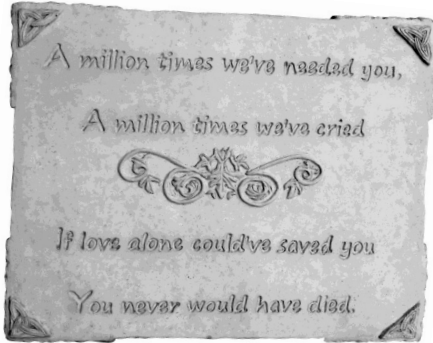 A million times we've needed you,
A million times we've cried
If love alone could've saved you
You never would have died.